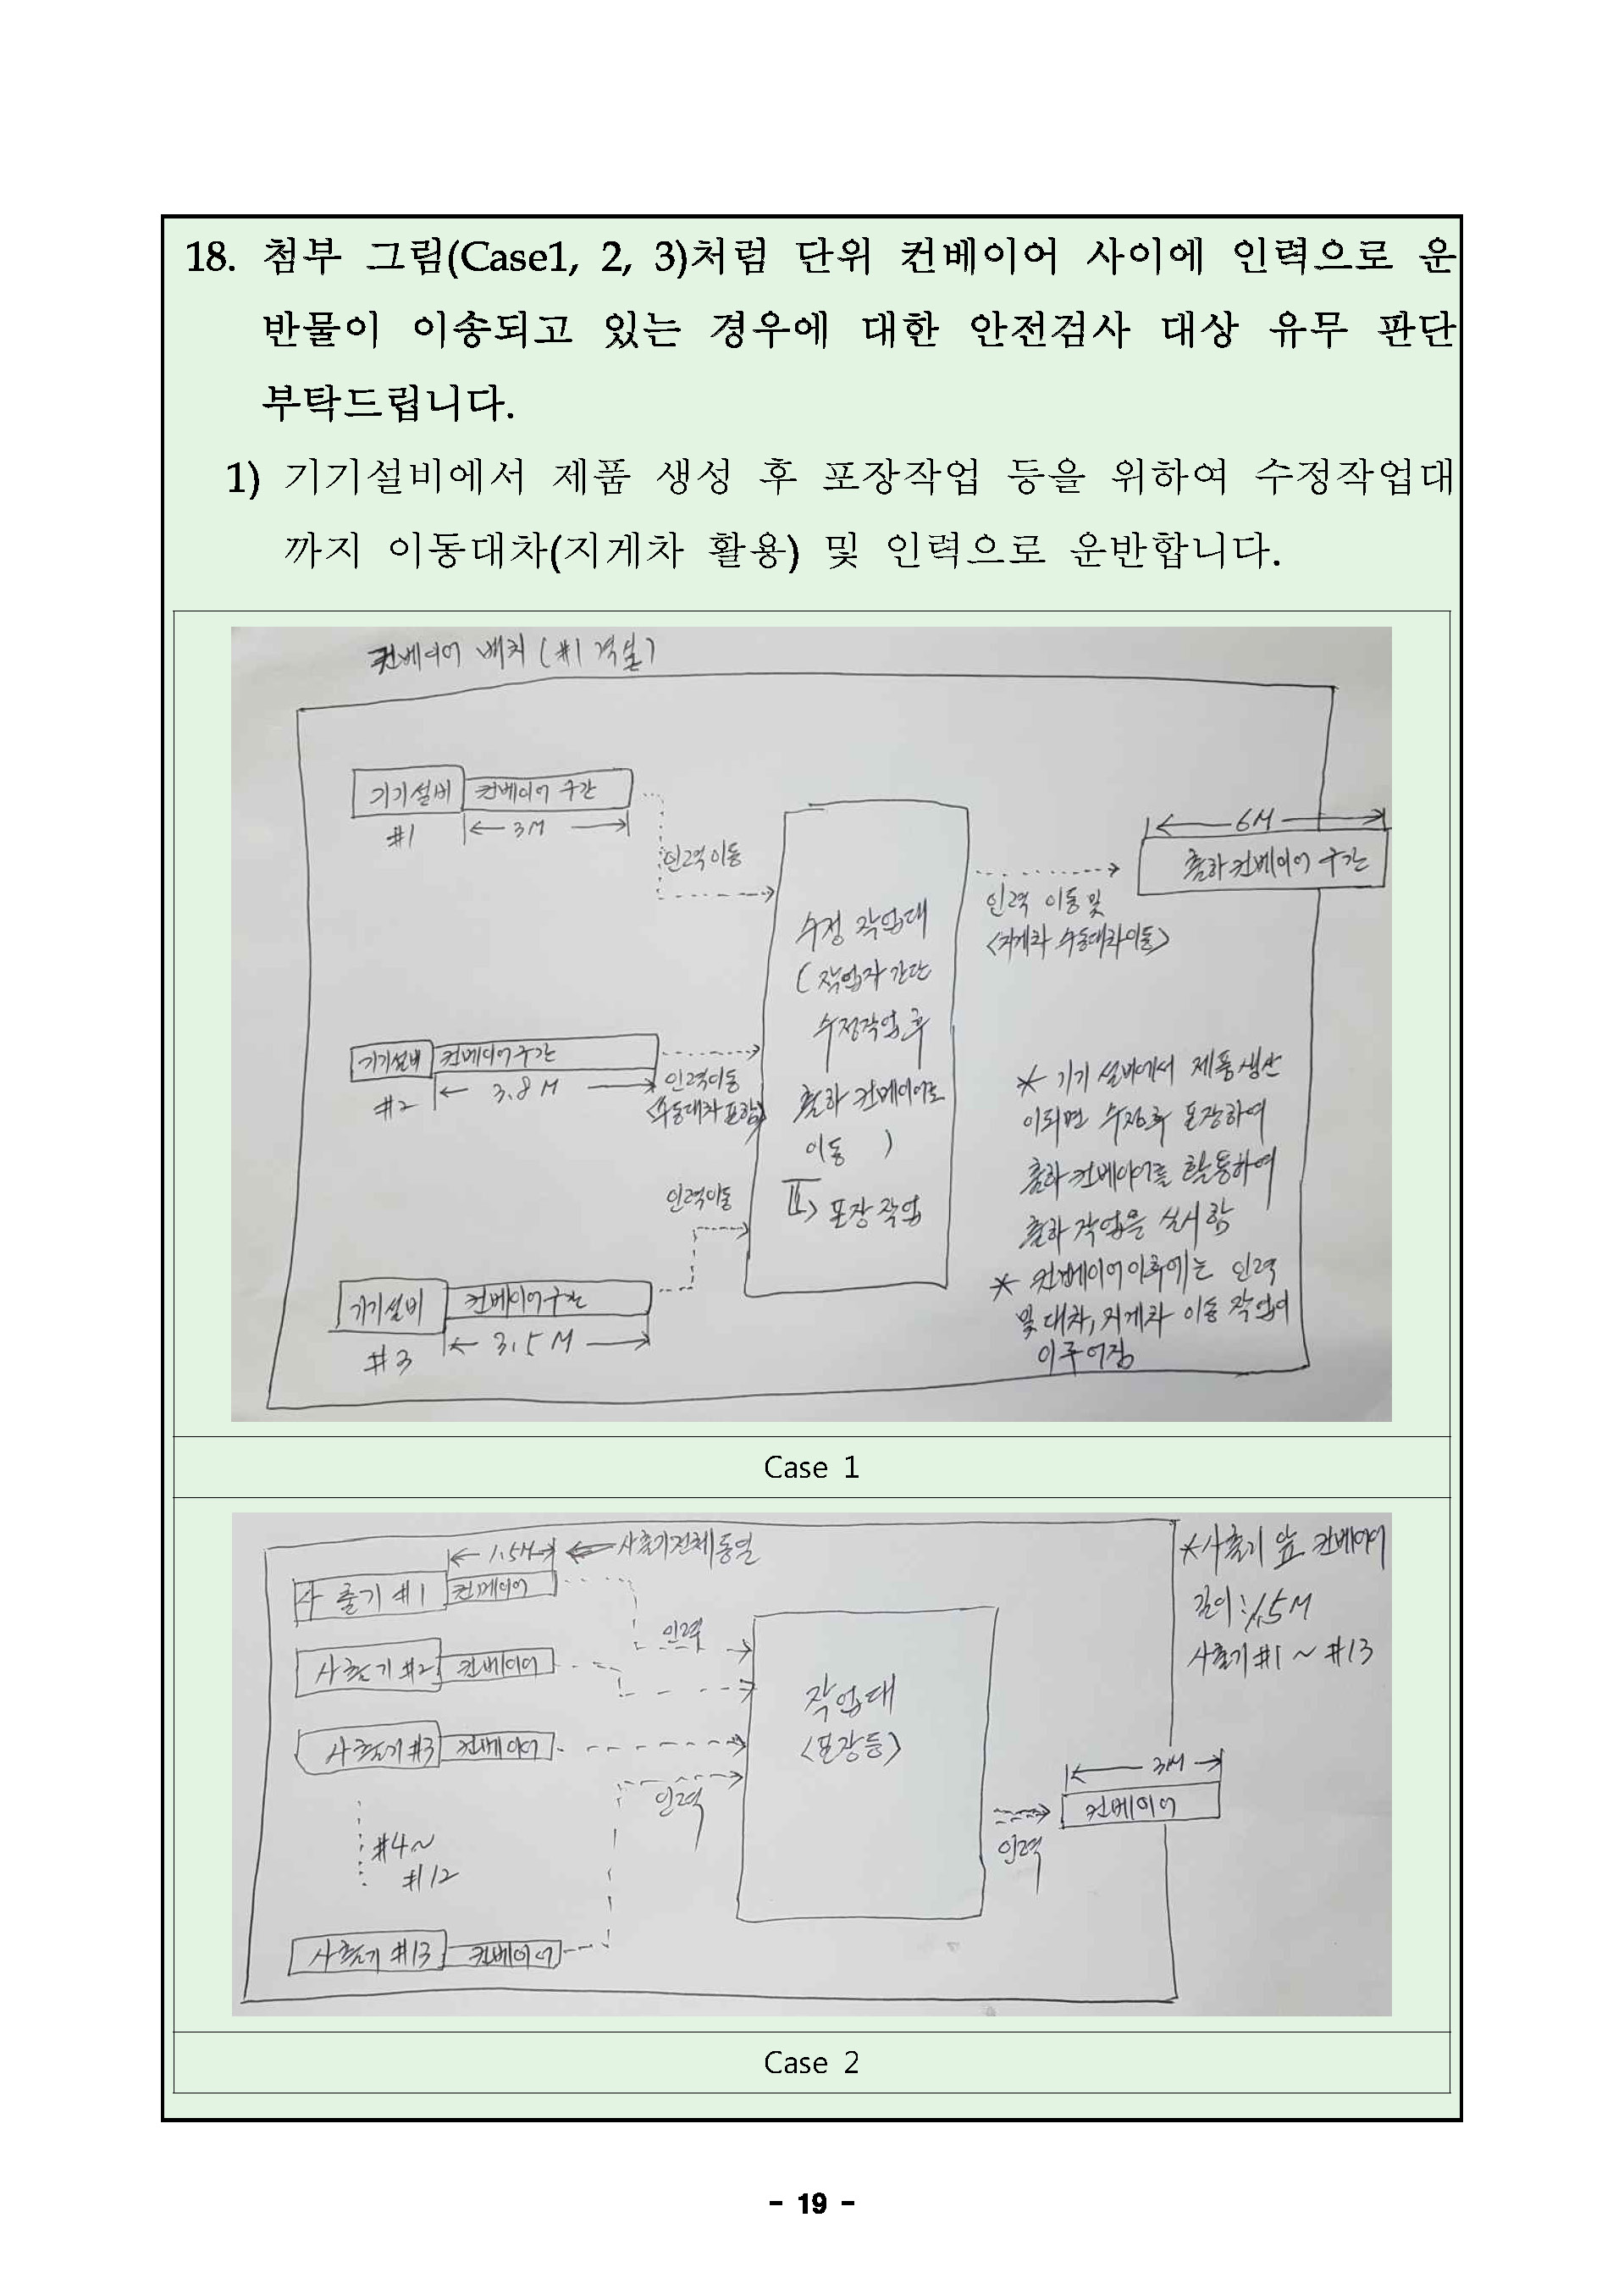 18. 첨부 그림(Case1, 2, 3)처럼 단위 컨베이어 사이에 인력으로 운
반물이 이송되고 있는 경우에 대한 안전검사 대상 유무 판단
부탁드립니다.
1) 기기설비에서 제품 생성 후 포장작업 등을 위하여 수정작업대
까지 이동대차(지게차 활용) 및 인력으로 운반합니다.
컨베이어 배치 (#1 격실)
기기설비 컨베이어 구간
#1 3M
인력이동
6M
출하 컨베이어 구간
인력 이동 및
<지게차 수동대차이동>
수정 작업대
(작업자 간단
수정작업 후
출하 컨베이어로
이동 )
포장 작업
기기설비 컨베이어구간
#2 3.8M
인력이동
<수동대차 포함>
인력이동
기기설비 컨베이어구간
#3 3.5M
* 기기 설비에서 제품생산
이되면 수정후 포장하여
출하 컨베이어를 활용하여
출하 작업을 실시함
* 컨베이어이후에는 인력
및 대차, 지게차 이동 작업이
이루어짐
Case 1
1.5M 사출기전체동일
사출기 #1 컨베이어
인력
사출기 #2 컨베이어
사출기 #3 컨베이어
인력
#4~
#12
사출기 #13 컨베이어
작업대
<포장등>
인력
3M
컨베이어
*사출기 앞 컨베이어
길이: 1.5M
사출기 #1 ~ #13
Case 2
- 19 -